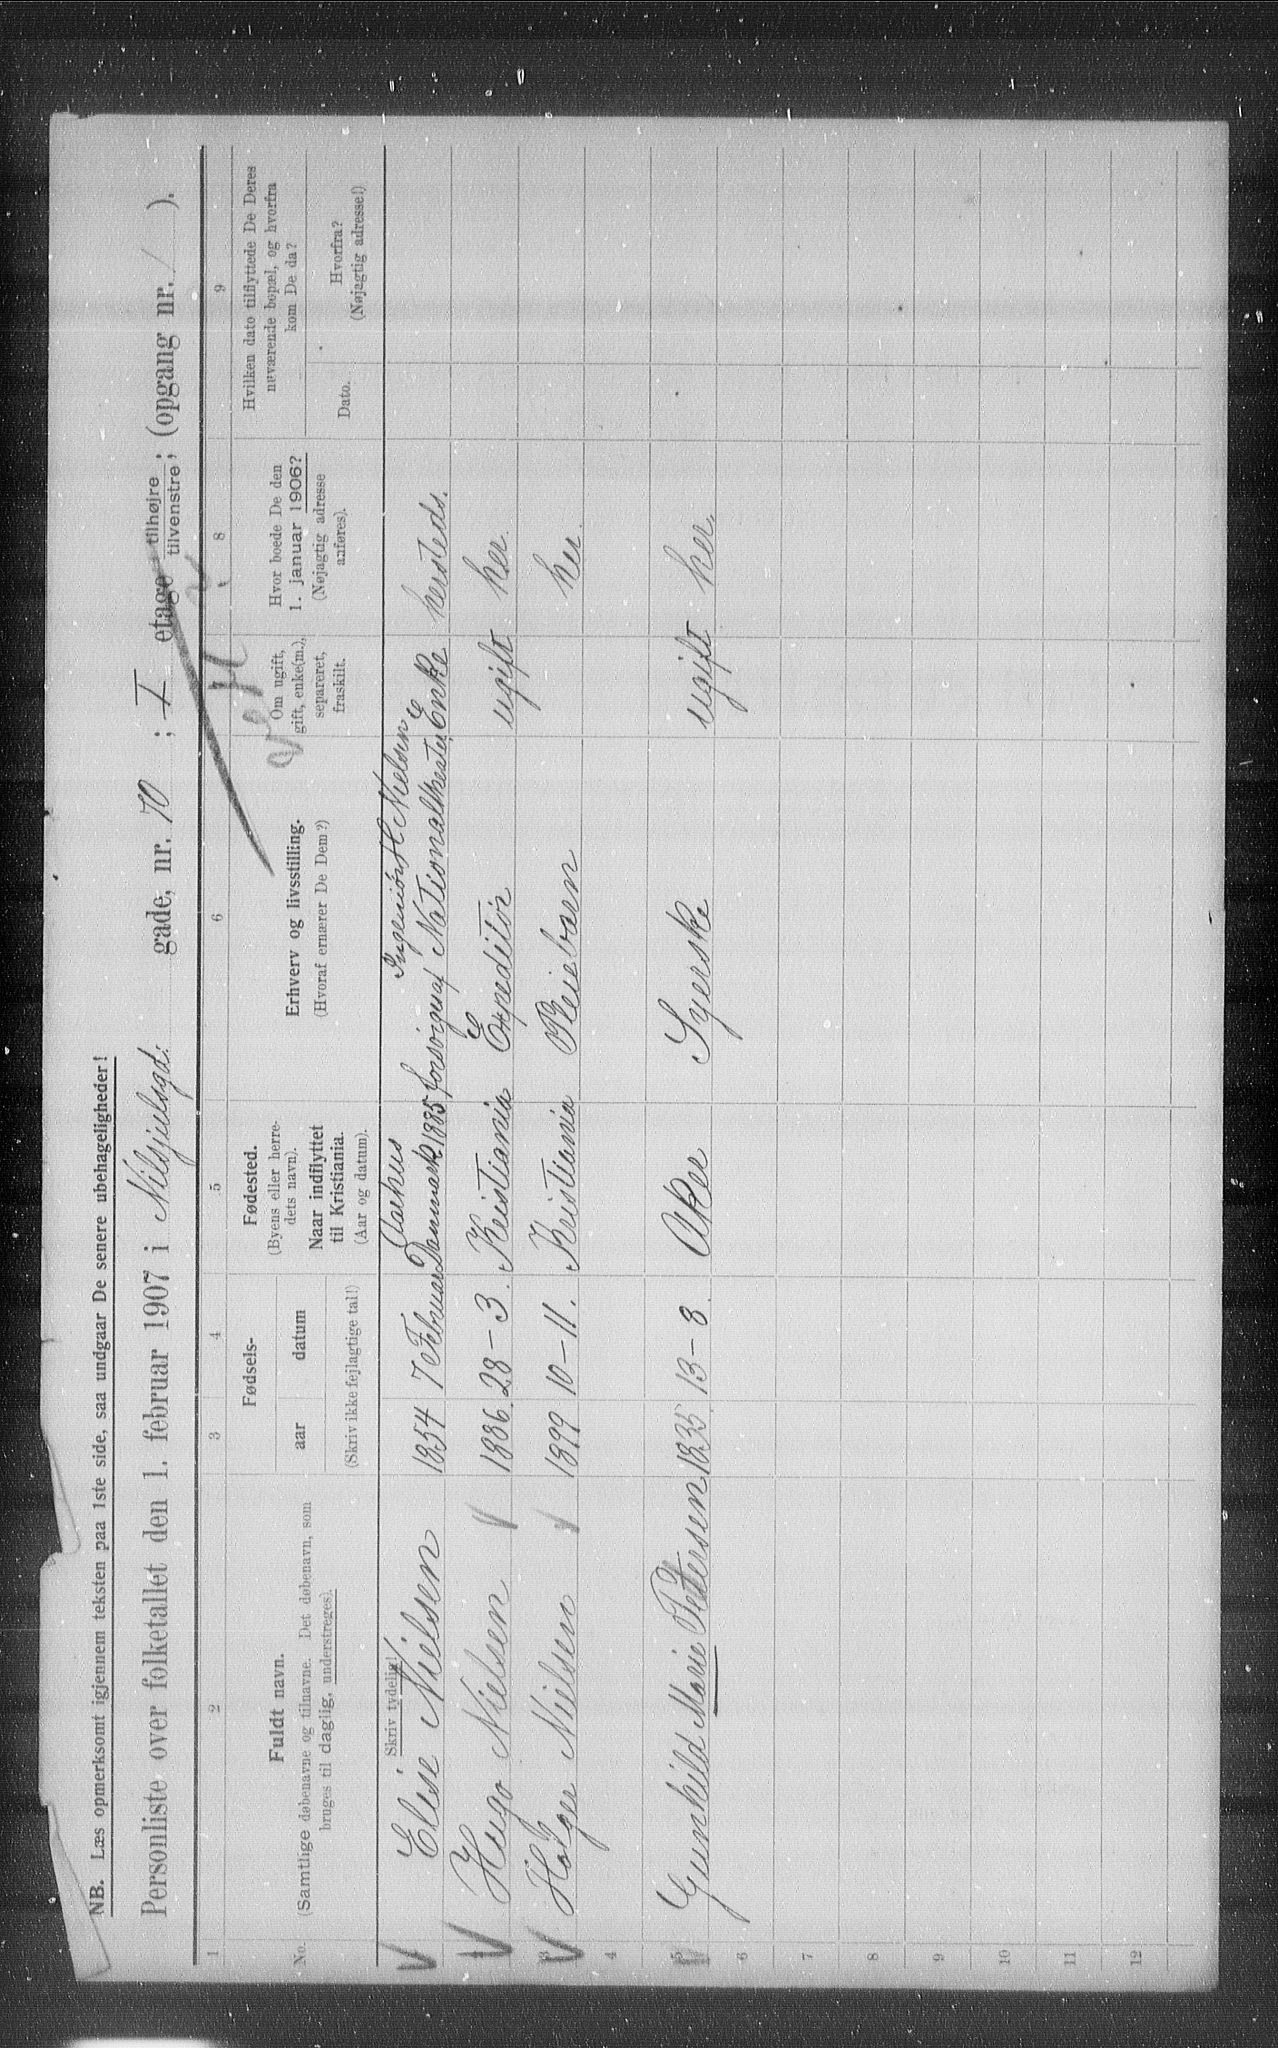 NB. Læs opmerksomt igjennem teksten paa 1ste side, saa undgaar De senere ubehageligheder!
Personliste over folketallet den 1. februar 1907 i Nilsjuelsgd: gade, nr. 70 ; I etage tilhøjre tilvenstre; (opgang nr. / ).
1 2 3 4 5 6 7 8 9
No.
Fuldt navn.
(Samtlige døbenavne og tilnavne. Det døbenavn, som
bruges til daglig, understreges).
Skriv tydelig!
Fødsels-
aar datum
(Skriv ikke fejlagtige tal!)
Fødested.
(Byens eller herre-
dets navn).
Naar indflyttet
til Kristiania.
(Aar og datum).
Erhverv og livsstilling.
(Hvoraf ernærer De Dem?)
Om ugift,
gift, enke(m.),
separeret,
fraskilt.
Hvor boede De den
1. januar 1906?
(Nøjagtig adresse
anføres).
Hvilken dato tilflyttede De Deres
nuværende bopæl, og hvorfra
kom De da?
Dato.
Hvorfra?
(Nøjagtig adresse!)
Aarhus Ingeniør H Nielsen
Elise Nielsen 1854 7 Februar Danmark 1885 forsørges af Nationaltheatret Enke hersteds.
Hugo Nielsen 1886 28-3. Kristiania Expeditør ugift her.
3 Holger Nielsen 1899 10-11. Kristiania Pleiebarn her.
4
5 Gunhild Marie Petersen 1835 13-8. Aker Syerske ugift her.
6
7
8
9
10
11
12